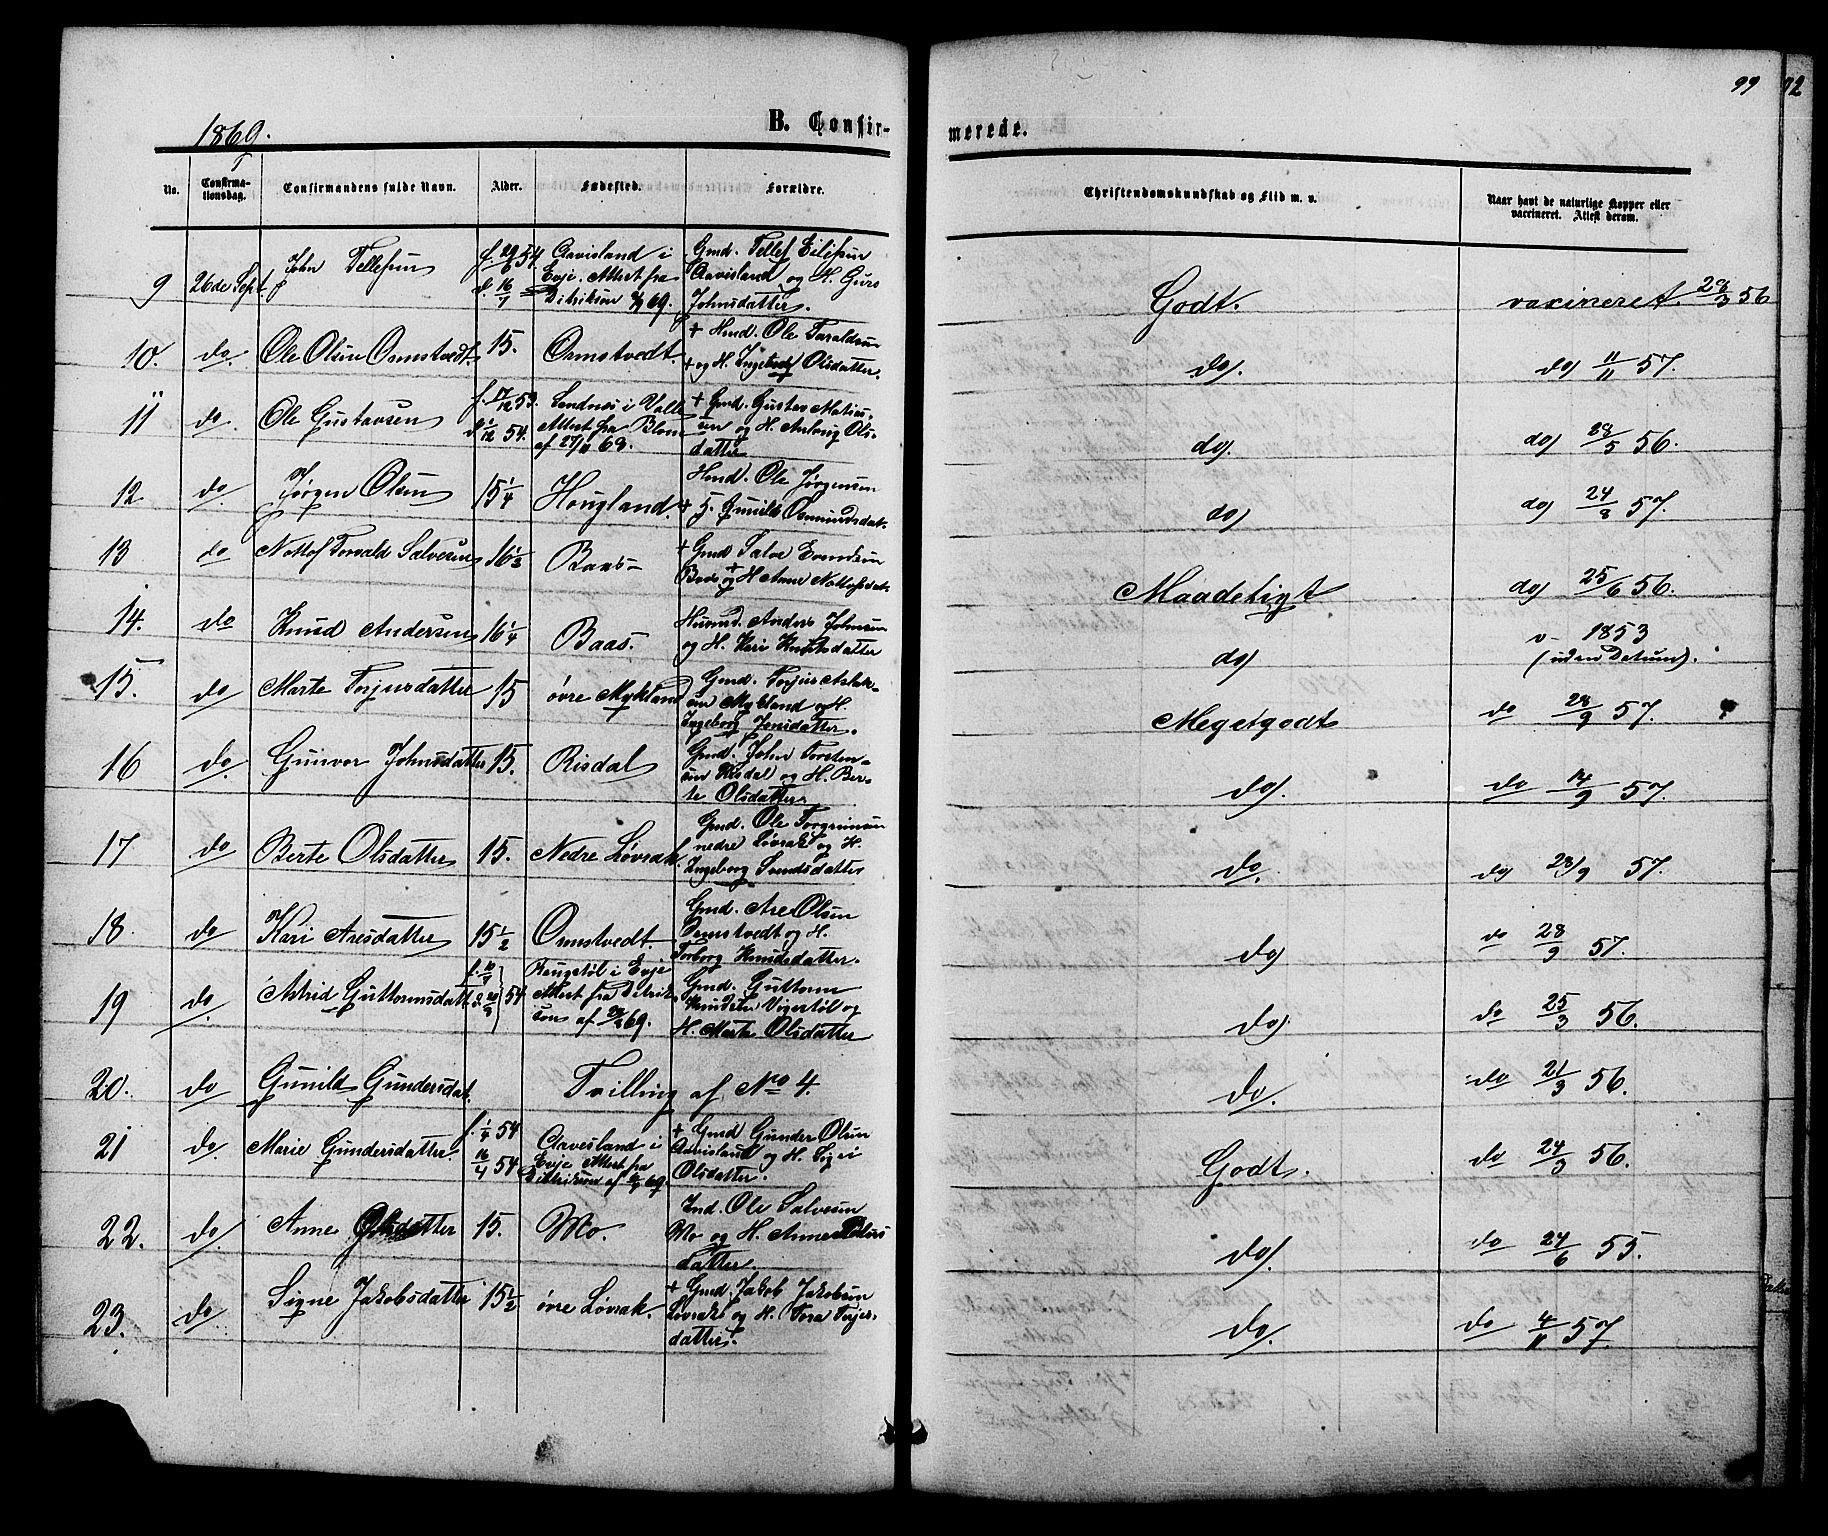 99
1869.
B. Confir-
merede.
No.
Confirma-
tionsdag.
Confirmandens fulde Navn.
Alder.
Fødested.
Forældre.
Christendomskundskab og Flid m. v.
Naar havt de naturlige Kopper eller
vaccineret. Attest derom.
9 26de Sept. John Tellefsen f. 29/6 54 d. 16/7 Aavisland i
Evje. Attest fra
Ditrikson 69.
Gmd. Tellef Eilifsen
Aavisland og H. Guro
Johnsdatter.
Godt. vaxineret 28/3 56
10. do. Ole Olsen Osmstvedt 15. Osmstvedt.
+ Hmd. Ole Taraldsen
+ og H. Ingeborg Olsdatter.
do. do 11/11 57.
11 do. Ole Gustavsen f. 17/12 53. d. 1/12 54. Sandnes i Valle
Attest fra Blom
af 68.
+ Gmd. Gustav Matias-
sen og H. Anlaug Ols-
datter
do. do 28/5 56.
12 do. Jørgen Olsen 15 1/4 Hougland.
Hmd. Ole Jørgensen
+ F. Gunild Osmundsdat.
do do 24/8 57.
13 do Nottof Torvald Salvesen 16 1/2 Baas
+ Gmd Salve Evendsen
Baas og H Anne Nottofsdat.
Maadeligt do 25/6 56.
14. do Knud Andersen 16 1/4 Baas.
Husmd. Anders Johnsen
og H. Kari Knudsdatter
do v- 1853
(uden Datum).
15. do Marte Torjusdatter 15 øvre Mykland
Gmd. Torjus Aslak-
sen Mykland og H.
Ingeborg Jensdatter.
Megetgodt do 28/9 57.
16 do. Gunvor Johnsdatter 15. Risdal
Gmd. John Torsten-
sen Risdal og H. Ber-
te Olsdatter
do. do 14/9 57.
17 do Berte Olsdatter 15. Nedre Løvrak.
Gmd. Ole Torgrimsen
nedre Løvrak og H.
Ingeborg Svendsdatter
do. do 23/9 57.
18. do Kari Aresdatter 15 1/2 Osmstvedt.
Gmd. Are Olsen
Osmstvedt og H.
Torborg Knudsdatter.
do do 28/9 57.
19 do Astrid Guttormsdatt. 54 i Evje
Attest fra Ditrik-
son af 69.
Gmd. Guttorm
Knudsen Vigestøl og
H. Marte Olsdatter
do. do 25/3 56.
20. do Gunild Gundersdat. Tvilling af No 4.
do. do 21/3 56.
21 do. Marie Gundersdatter. f. 1/4 54 16/4 54 Aavesland i
Evje Attest fra
Ditrikson af 69.
+ Gmd Gunder Olsen
Aavisland og H. Sigri
Olsdatter.
Godt. do 24/3 56.
22. do. Anne Olsdatter 15. Mo.
Ind. Ole Salvesen
Mo og H. Anne
datter.
do. do 24/6 55.
23. do Signe Jakobsdatter 15 1/2 øvre Løvrak.
+ Gmd. Jakob Jakobsen
Løvrak og H. Tora Terjes-
datter.
do. do 4/11 57.